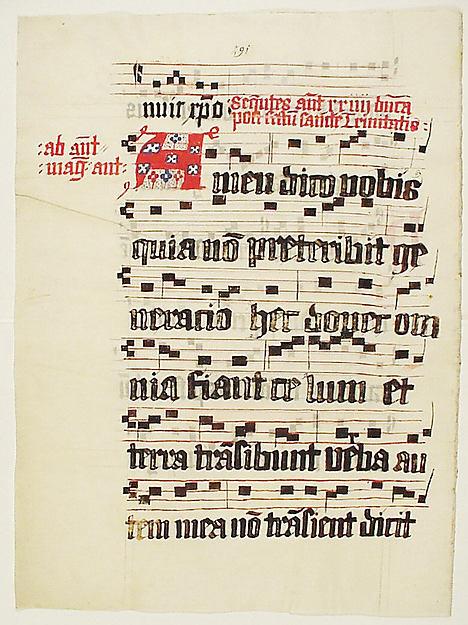 191
nuit xpō
Sequētes ant xxiiij dn̄ica
post festū sancte Trinitatis
: ab ant :
: mag ant :
Amen dico vobis
quia nō preteribit ge
neracio hec donec om
nia fiant celum et
terra trāsibunt vēba au
tem mea nō trāsient dicit